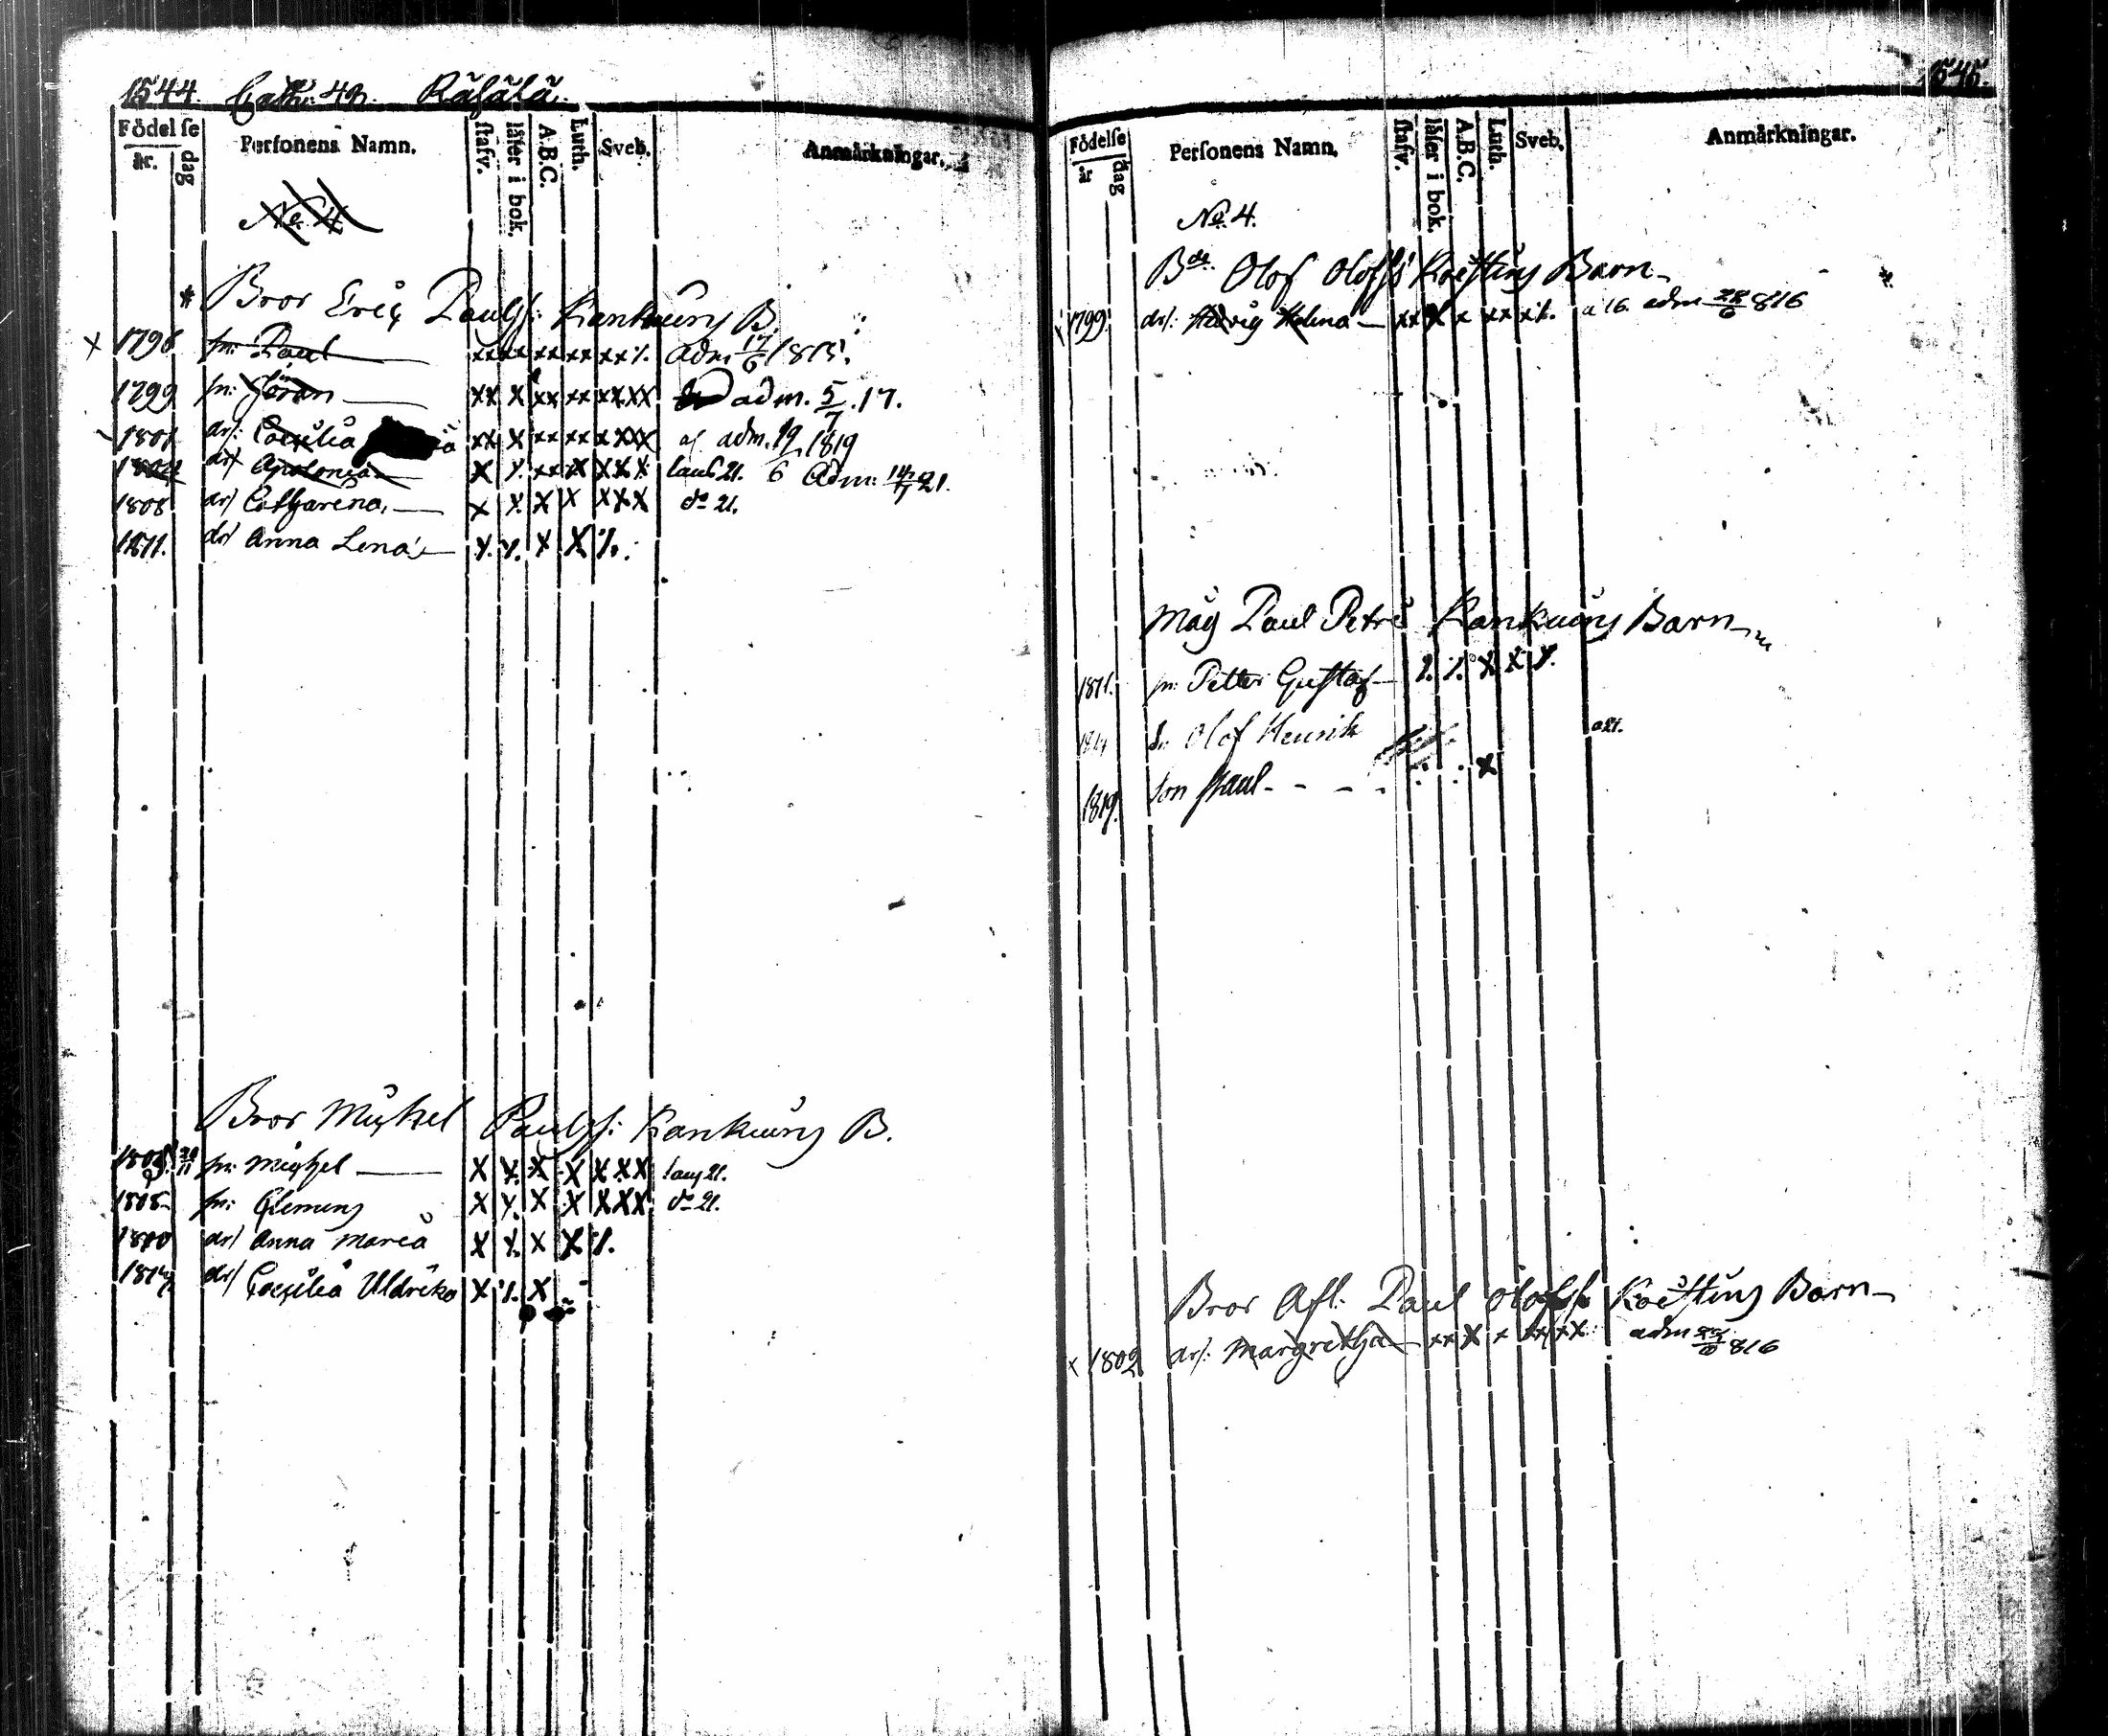 1544. Cath: 4 Räfälä.
Födelse
år. dag
Personens Namn.
stafv.
läser i bok.
A.B.C.
Luth.
Sveb.
Anmärkningar.
No 4
Bror Eric Paulss: Kankuns B.
1796 sn: Paul xx xx xx xx xx% adm 17/6 1815.
1799 sn: Jöran xx x xx xx xxxx adm. 5/7. 17.
1801 dr: Caecilia xx x xx xx xxxx adm. 19/6 1819
dr Apolonia x x xx x xxx laud 21. Adm: 14/7 21.
1808 dr Catharina x x x x xxx do 21.
1811. dr Anna Lena x x x x %.
Bror Mickel Paulss: Kankuns B.
sn: Michel x x x x xxx laud 21.
1808 sn: Clemens x x x x xxx do 21.
1810 dr Anna Maria x x x x %.
dr Caecilia Uldrika x % x
1545.
Födelse
år dag
Personens Namn.
stafv.
läser i bok.
A.B.C.
Luth.
Sveb.
Anmärkningar.
No 4.
Bde Olof Olofss Koistins Barn
1799. dr: Hedvig Helena xx x x xx x%. a 16. adm 816
Måg Paul Petrs Kankuns Barn
1811. sn: Petter Gustaf % % x x %.
Olof Henrik a 21.
1819. son Paul x
Bror Afl: Paul Olofss Koistins Barn
1802 dr: Margretha xx x x xx xx adm 816